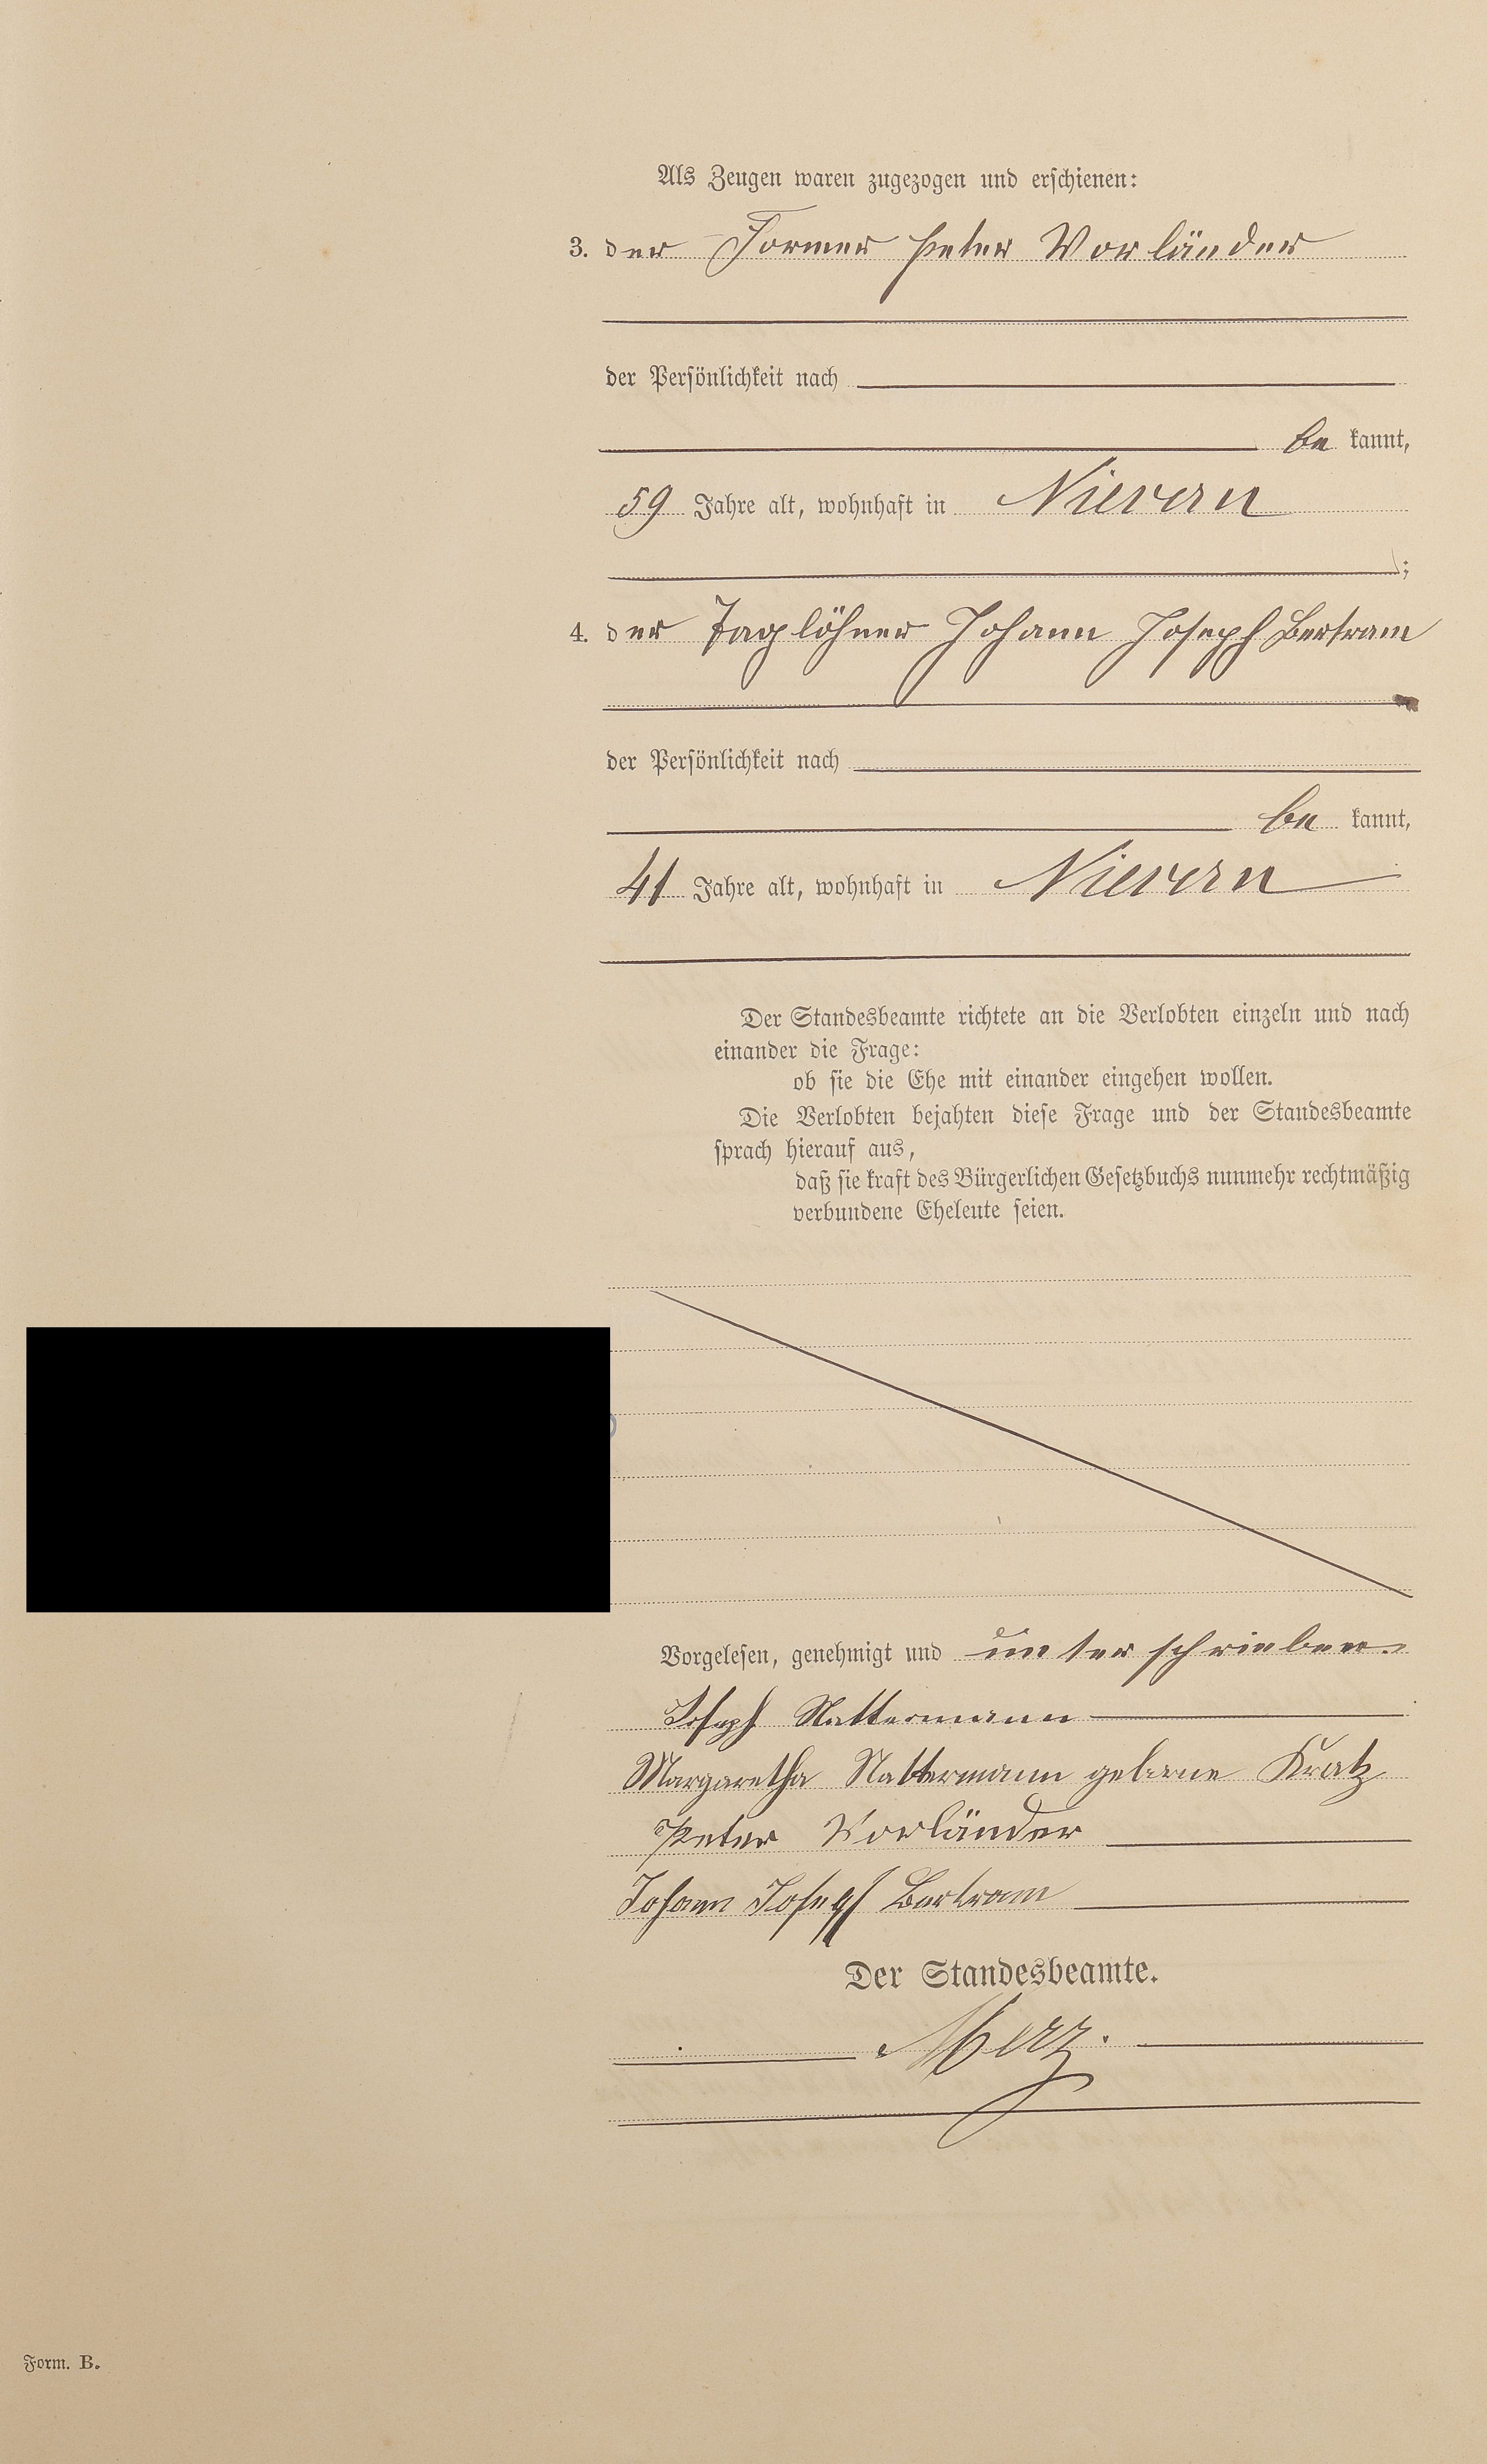 Als Zeugen waren zugezogen und erschienen:
3. der Former Peter Vorländer
der Persönlichkeit nach
be kannt,
59 Jahre alt, wohnhaft in Nievern
;
4. der Taglöhner Johann Joseph Bertram
der Persönlichkeit nach
be kannt,
41 Jahre alt, wohnhaft in Nievern
Der Standesbeamte richtete an die Verlobten einzeln und nach
einander die Frage:
ob sie die Ehe mit einander eingehen wollen.
Die Verlobten bejahten diese Frage und der Standesbeamte
sprach hierauf aus,
daß sie kraft des Bürgerlichen Gesetzbuchs nunmehr rechtmäßig
verbundene Eheleute seien.
Vorgelesen, genehmigt und unterschrieben.
Joseph Nattermann
Margaretha Nattermann geborne Kratz
Peter Vorländer
Johann Joseph Bertram
Der Standesbeamte.
Merz.
Form. B.